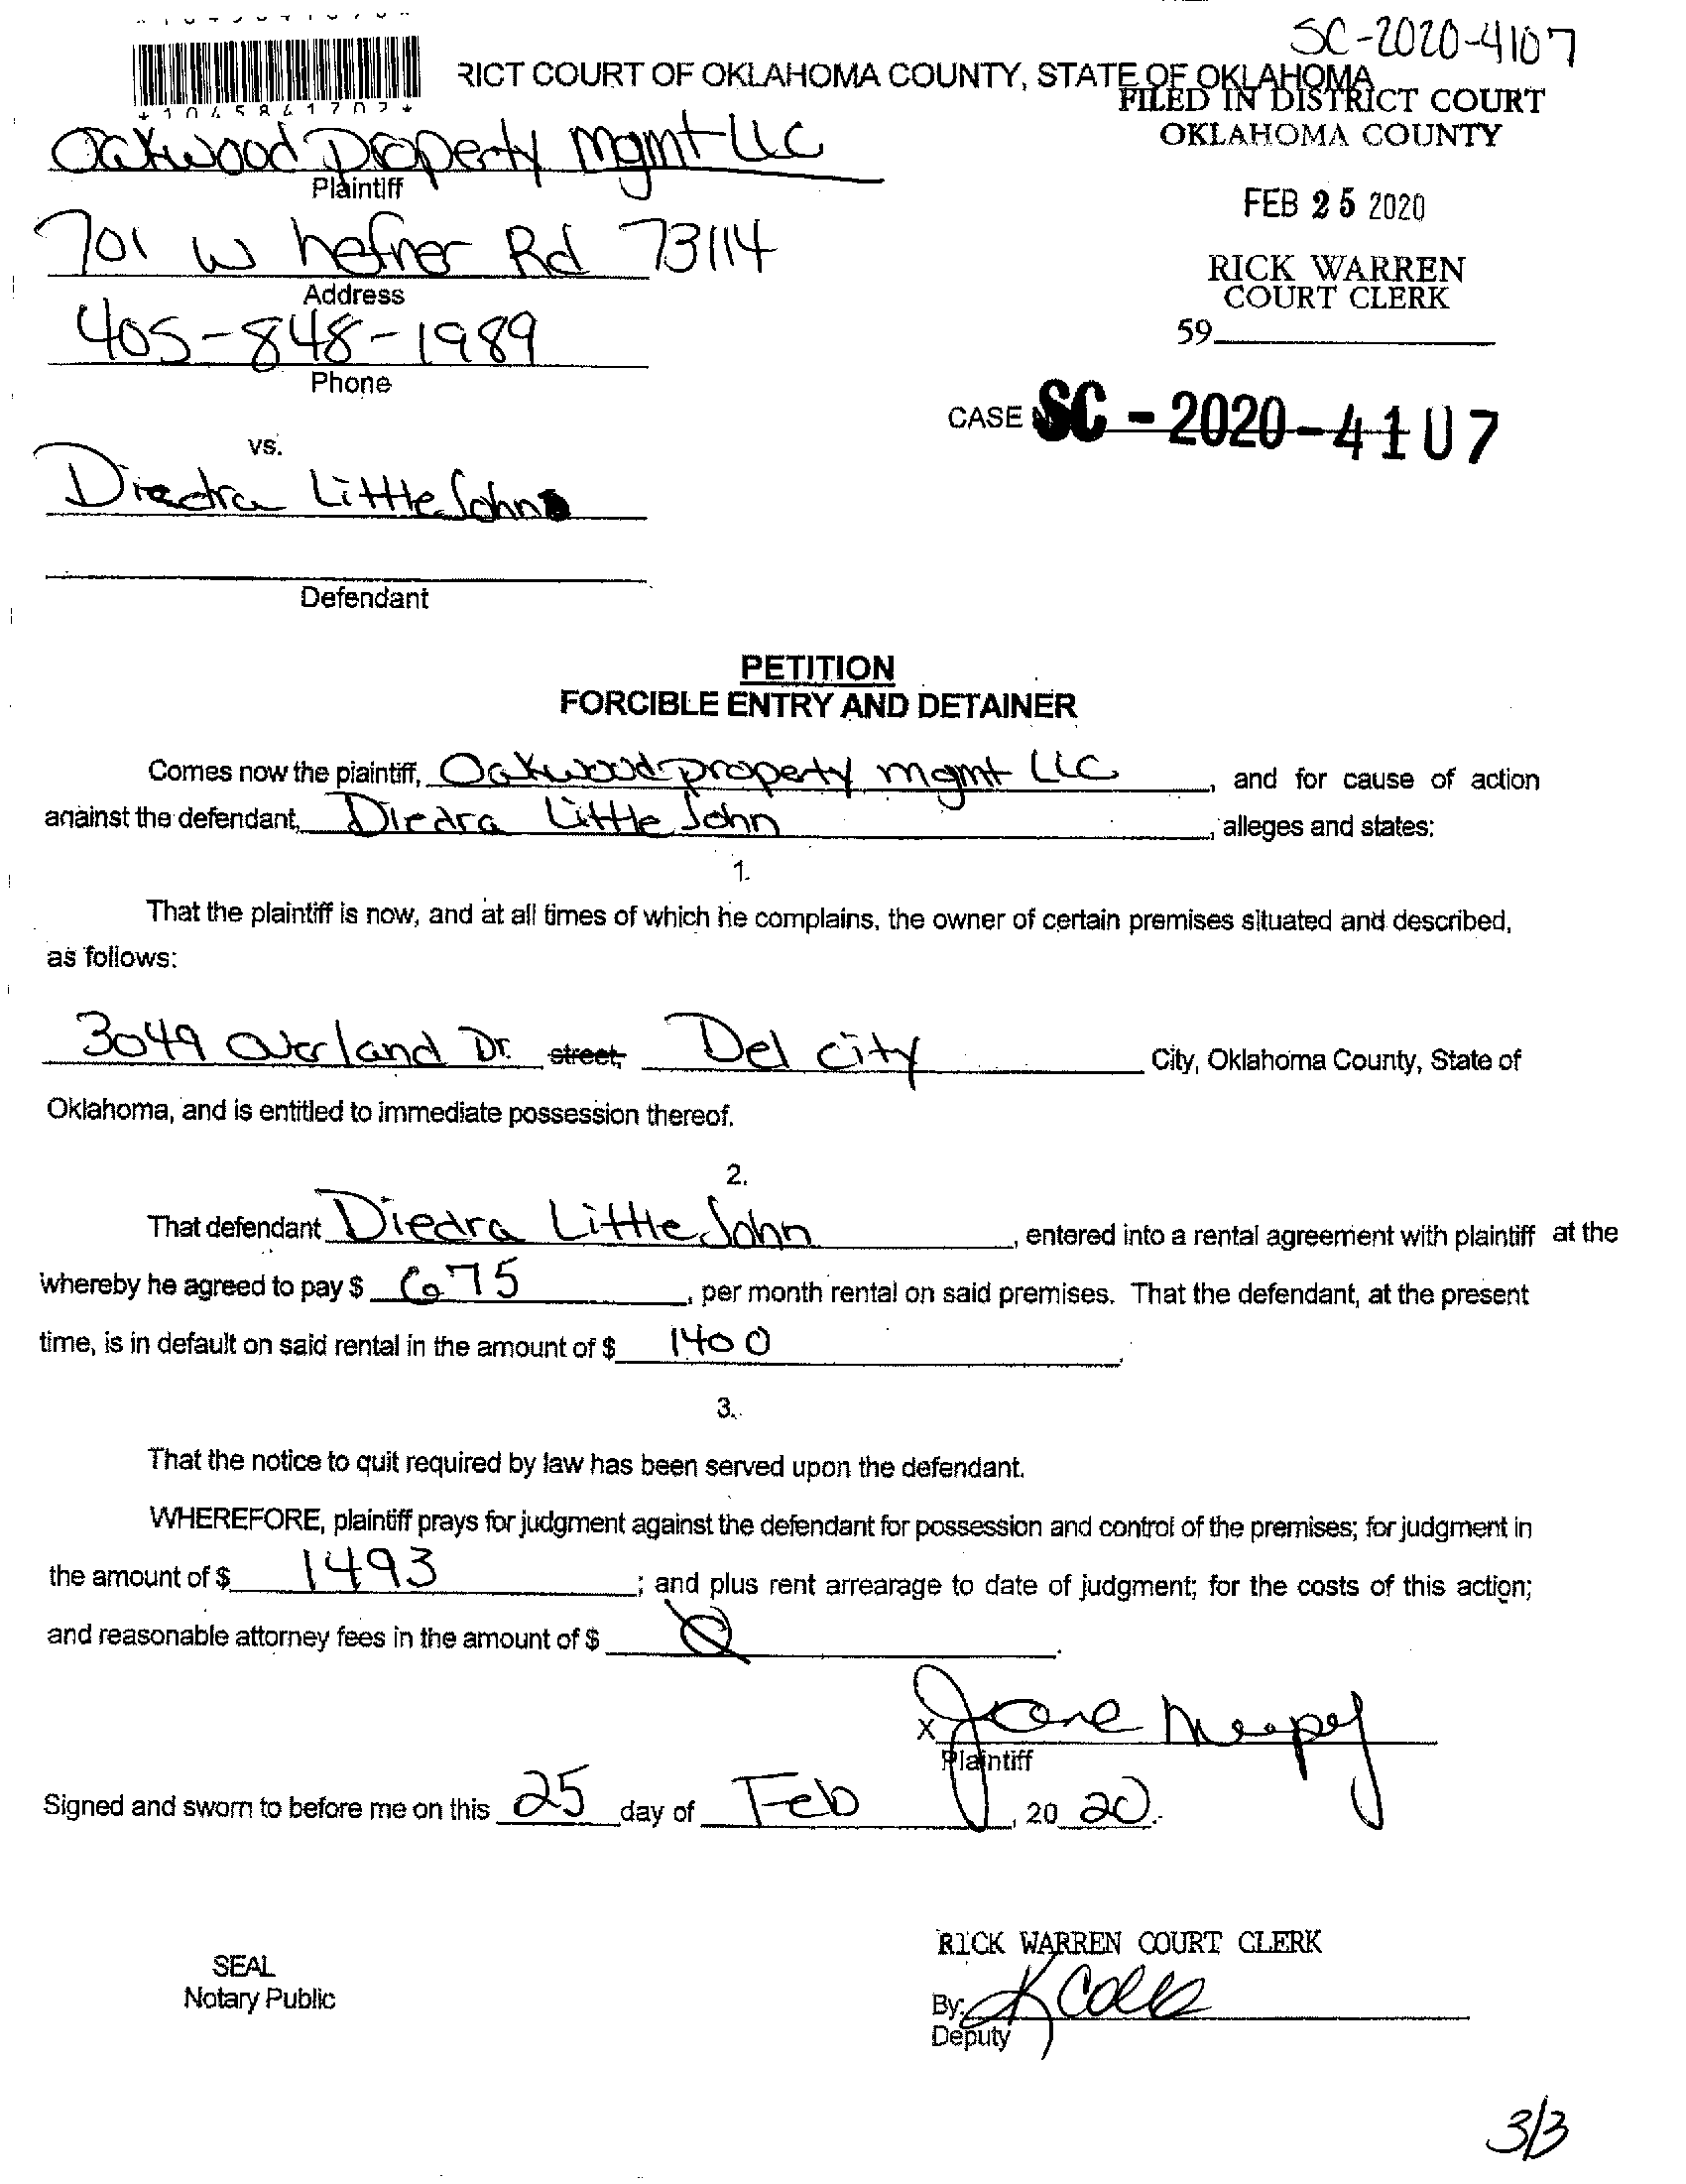 SC-2020-4107
RICT COURT OF OKLAHOMA COUNTY, STATE OF OKLAHOMA
FILED IN DISTRICT COURT
OKLAHOMA COUNTY
*1045841702*
Oakwood Property Mgmt LLC
Plaintiff
FEB 25 2020
701 W hefner Rd 73114
Address
RICK WARREN
COURT CLERK
405-848-1989
59
Phone
CASE SC-2020-4107
vs.
Diedra LittleJohn
Defendant
PETITION
FORCIBLE ENTRY AND DETAINER
Comes now the plaintiff, Oakwood property mgmt LLC, and for cause of action
against the defendant, Diedra Little John, alleges and states:
1.
That the plaintiff is now, and at all times of which he complains, the owner of certain premises situated and described,
as follows:
3049 Overland Dr. street, Del City City, Oklahoma County, State of
Oklahoma, and is entitled to immediate possession thereof.
2.
That defendant Diedra Little John, entered into a rental agreement with plaintiff at the
whereby he agreed to pay $ 675, per month rental on said premises. That the defendant, at the present
time, is in default on said rental in the amount of $ 1400.
3.
That the notice to quit required by law has been served upon the defendant.
WHEREFORE, plaintiff prays for judgment against the defendant for possession and control of the premises; for judgment in
the amount of $ 1493; and plus rent arrearage to date of judgment; for the costs of this action;
and reasonable attorney fees in the amount of $ 0.
X Jane
Plaintiff
Signed and sworn to before me on this 25 day of Feb, 2020.
RICK WARREN COURT CLERK
SEAL
Notary Public
By:
Deputy
3/3